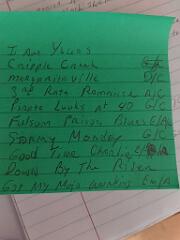 I Am Yours
Cripple Creek G/A
Margaritaville D/C
3rd Rate Romance A/C
Pirate Looks at 40 G/C
Folsom Prison Blues E/A
Stormy Monday G/C
Good Time Charlie
Down By The River
Got My Mojo Working Em/A